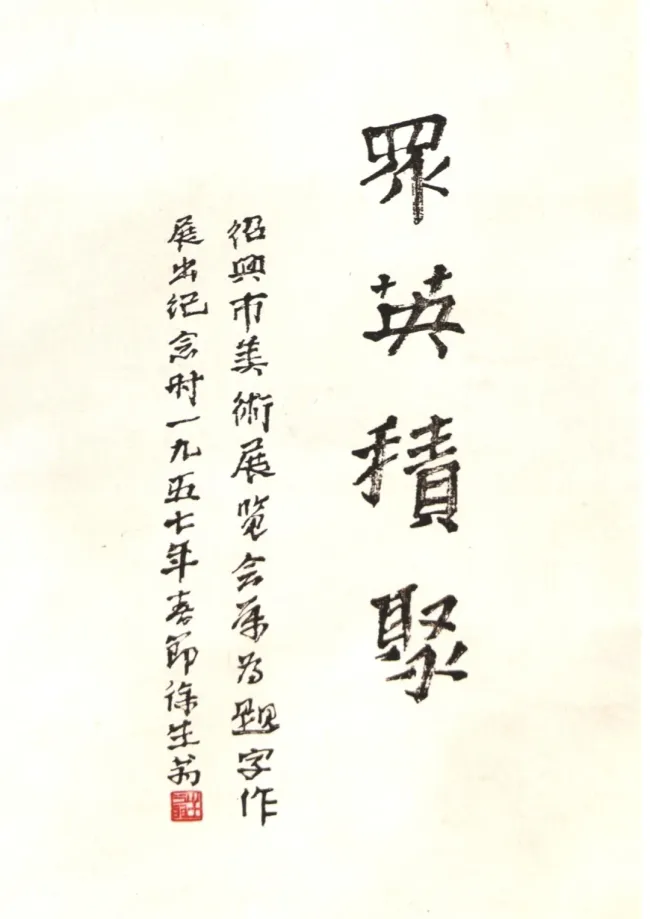 眾英積聚
紹興市美術展览会属为題字作
展出纪念时一九五七年春節徐生翁